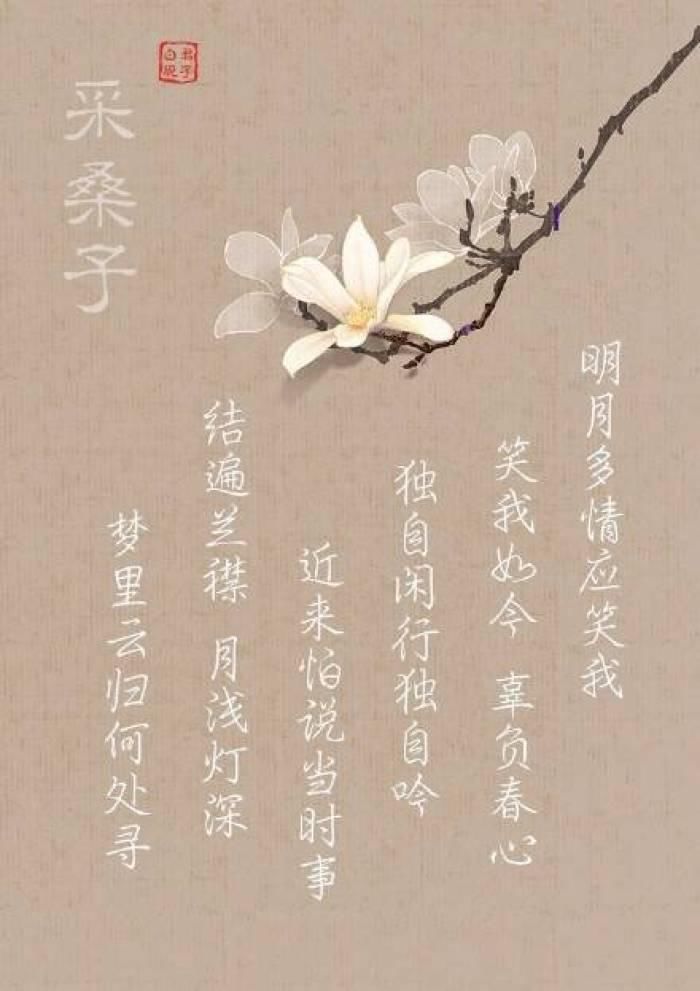 采桑子
君子
明月多情应笑我
笑我如今 辜负春心
独自闲行独自吟
近来怕说当时事
结遍兰襟 月浅灯深
梦里云归何处寻